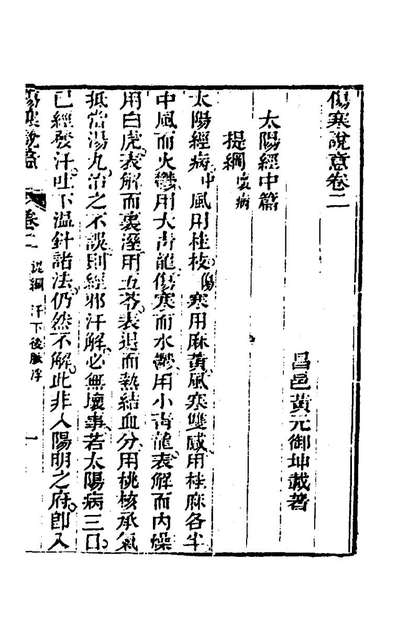 傷寒說意卷二
太陽經中篇
昌邑黃元御坤載著
提綱壞病
太陽經病中風用桂枝傷寒用麻黃風寒雙感用桂麻各半
中風而火鬱用大青龍傷寒而水鬱用小青龍表解而內燥
用白虎表解而裏溼用五苓表退而熱結血分用桃核承氣
抵當湯丸治之不誤則經邪汗解必無壞事若太陽病三日
已經發汗吐下温針諸法仍然不解此非入陽明之府卽入
傷寒說意 卷二 提綱 汗下後脈浮 一